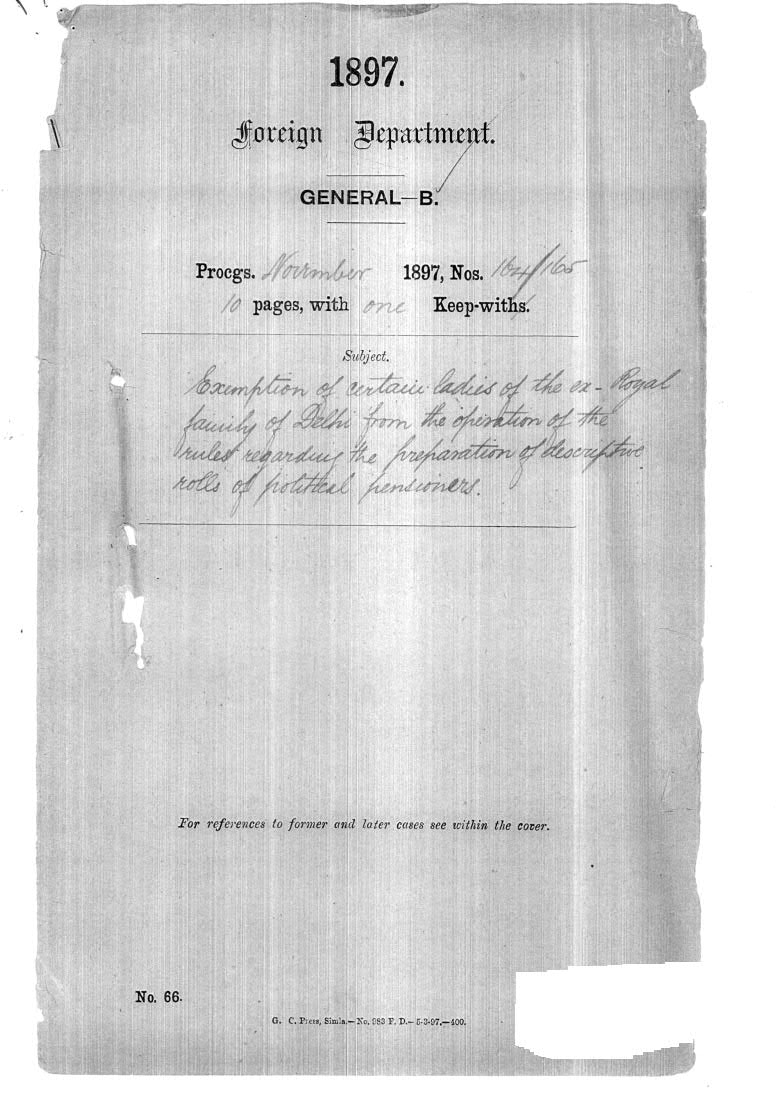 1897.
Foreign Department.
GENERAL—B.
Procgs. November 1897, Nos. 164/165
10 pages, with one Keep-withs.
Subject.
Exemption of certain ladies of the ex-Royal
family of Delhi from the operation of the
rules regarding the preparation of descriptive
rolls of political pensioners.
For references to former and later cases see within the cover.
No. 66.
G. C. Press, Simla.—No. 983 F. D.—5-3-97.—400.